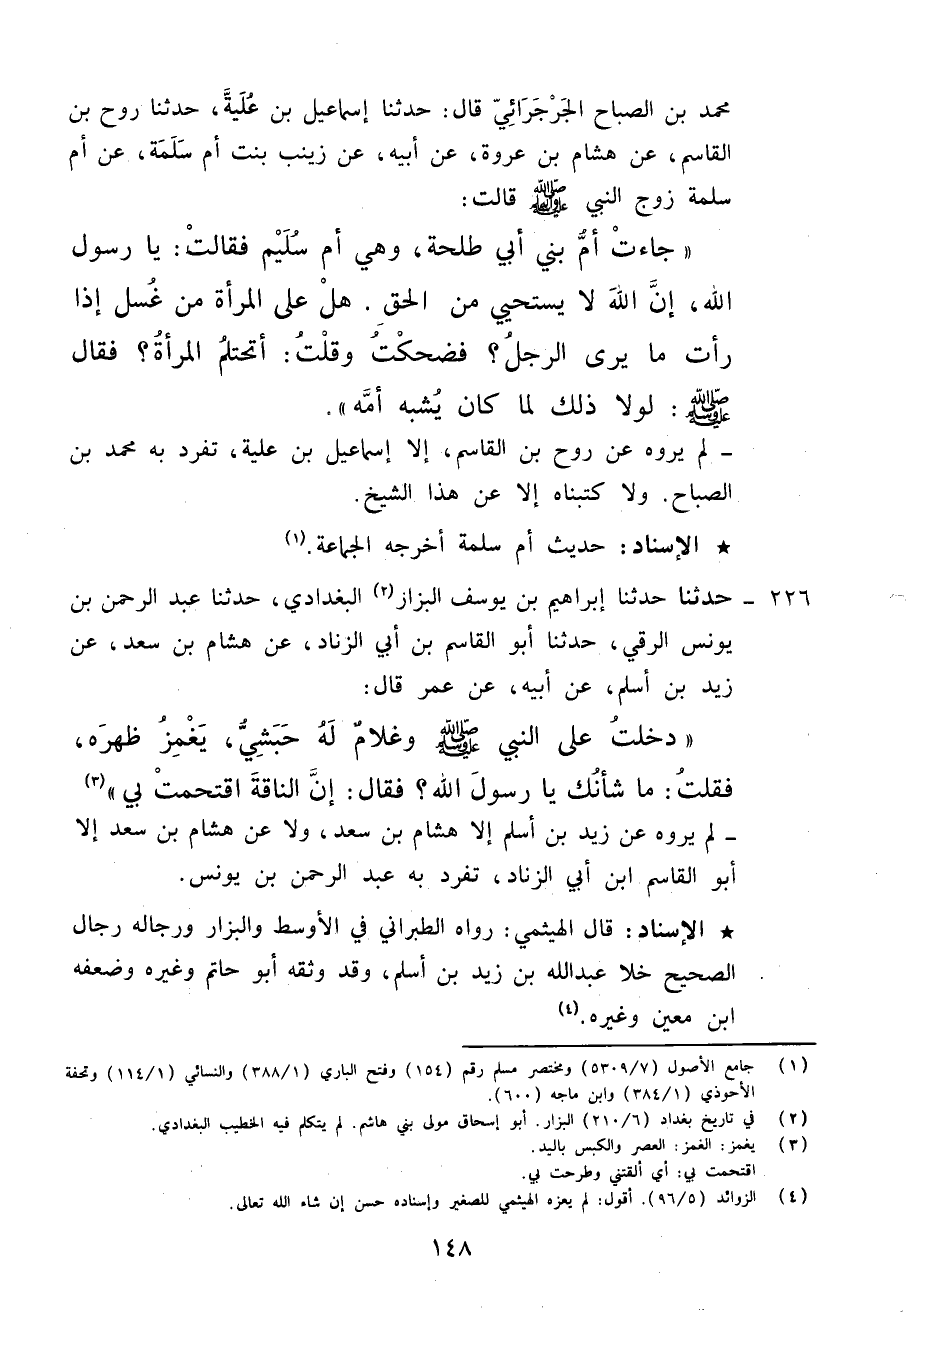 محمد بن الصباح الجَرْجَرَائِيّ قال: حدثنا إسماعيل بن عُلَيةَّ، حدثنا روح بن
القاسم، عن هشام بن عروة، عن أبيه، عن زينب بنت أم سَلَمَة، عن أم
سلمة زوج النبي ﷺ قالت:
« جاءتْ أمُّ بني أبي طلحة، وهي أم سُلَيْم فقالتْ: يا رسول
الله، إنَّ اللهَ لا يستحيي من الحق. هلْ على المرأة من غُسل إذا
رأت ما يرى الرجلُ؟ فضحكْتُ وقلْتُ: أتحتلمُ المرأةُ؟ فقال
ﷺ: لولا ذلك لما كان يُشبه أمَّه».
ـ لم يروه عن روح بن القاسم، إلا إسماعيل بن علية، تفرد به محمد بن
الصباح. ولا كتبناه إلا عن هذا الشيخ.
★ الإسناد: حديث أم سلمة أخرجه الجماعة.(١)
٢٢٦ ـ حدثنا حدثنا إبراهيم بن يوسف البزار(٢) البغدادي، حدثنا عبد الرحمن بن
يونس الرقي، حدثنا أبو القاسم بن أبي الزناد، عن هشام بن سعد، عن
زيد بن أسلم، عن أبيه، عن عمر قال:
« دخلتُ على النبي ﷺ وغلامٌ لَهُ حَبَشيٌّ، يَغْمِزُ ظهرَه،
فقلتُ: ما شأنُك يا رسولَ الله؟ فقال: إنَّ الناقةَ اقتحمتْ بي»(٣)
ـ لم يروه عن زيد بن أسلم إلا هشام بن سعد، ولا عن هشام بن سعد إلا
أبو القاسم ابن أبي الزناد، تفرد به عبد الرحمن بن يونس.
★ الإسناد: قال الهيثمي: رواه الطبراني في الأوسط والبزار ورجاله رجال
الصحيح خلا عبدالله بن زيد بن أسلم، وقد وثقه أبو حاتم وغيره وضعفه
ابن معين وغيره.(٤)
(١) جامع الأصول (٥٣٠٩/٧) ومختصر مسلم رقم (١٥٤) وفتح الباري (٣٨٨/١) والنسائي (١١٤/١) وتحفة
الأحوذي (٣٨٤/١) وابن ماجه (٦٠٠).
(٢) في تاريخ بغداد (٢١٠/٦) البزار. أبو إسحاق مولى بني هاشم. لم يتكلم فيه الخطيب البغدادي.
(٣) يغمز: الغمز: العصر والكبس باليد.
اقتحمت بي: أي ألقتني وطرحت بي.
(٤) الزوائد (٩٦/٥). أقول: لم يعزه الهيثمي للصغير وإسناده حسن إن شاء الله تعالى.
١٤٨